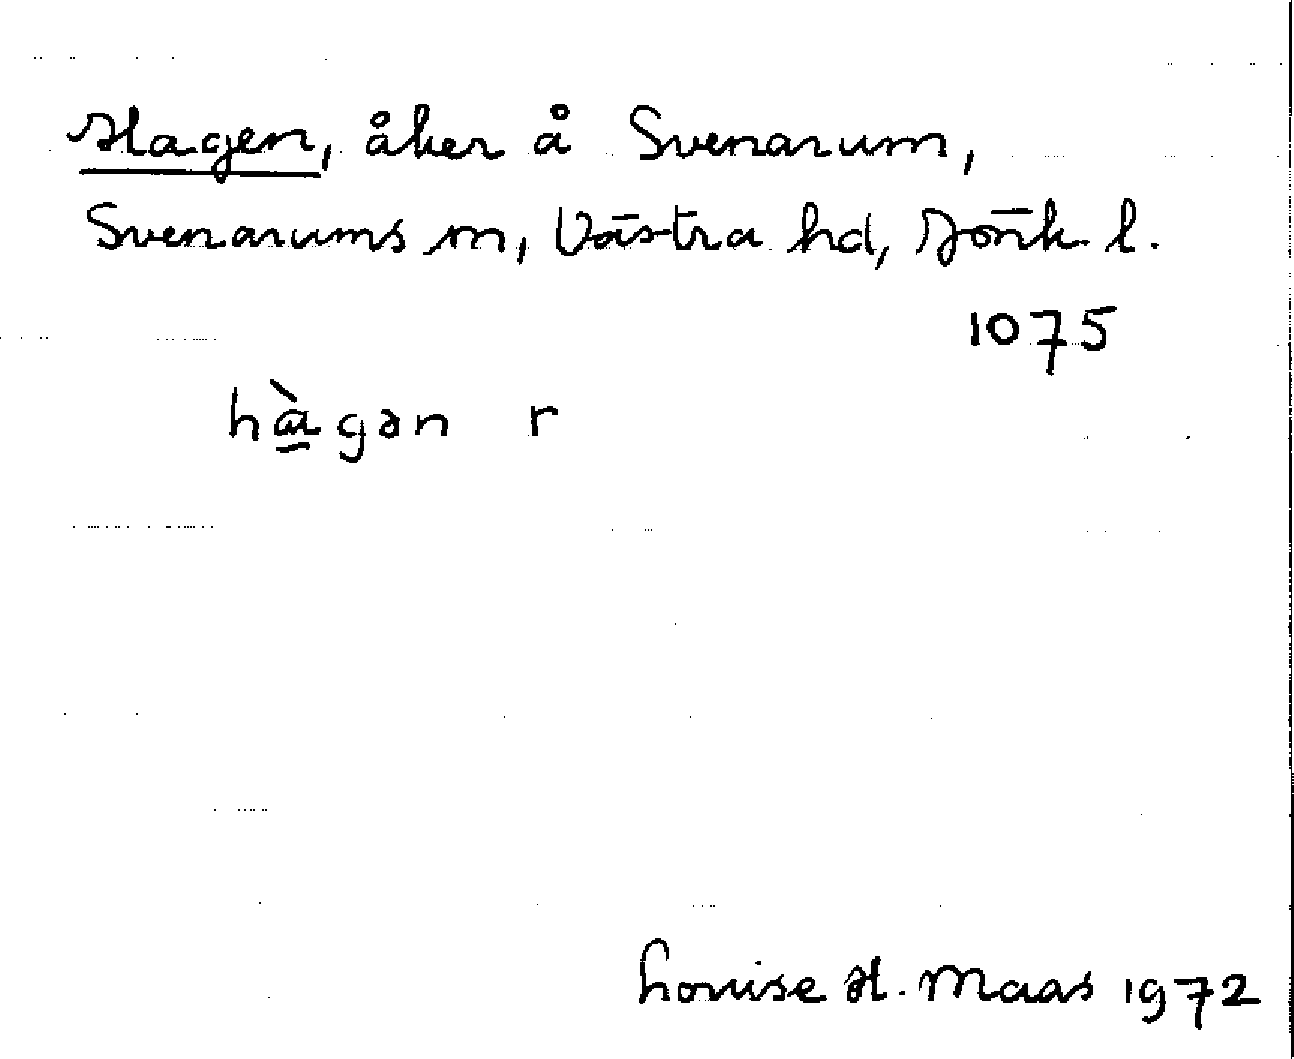 Hagen, åker å Svenarum,
Svenarums sn, Västra hd, Jönk. l.
1075
hà̱gən r
Louise H. Maas 1972